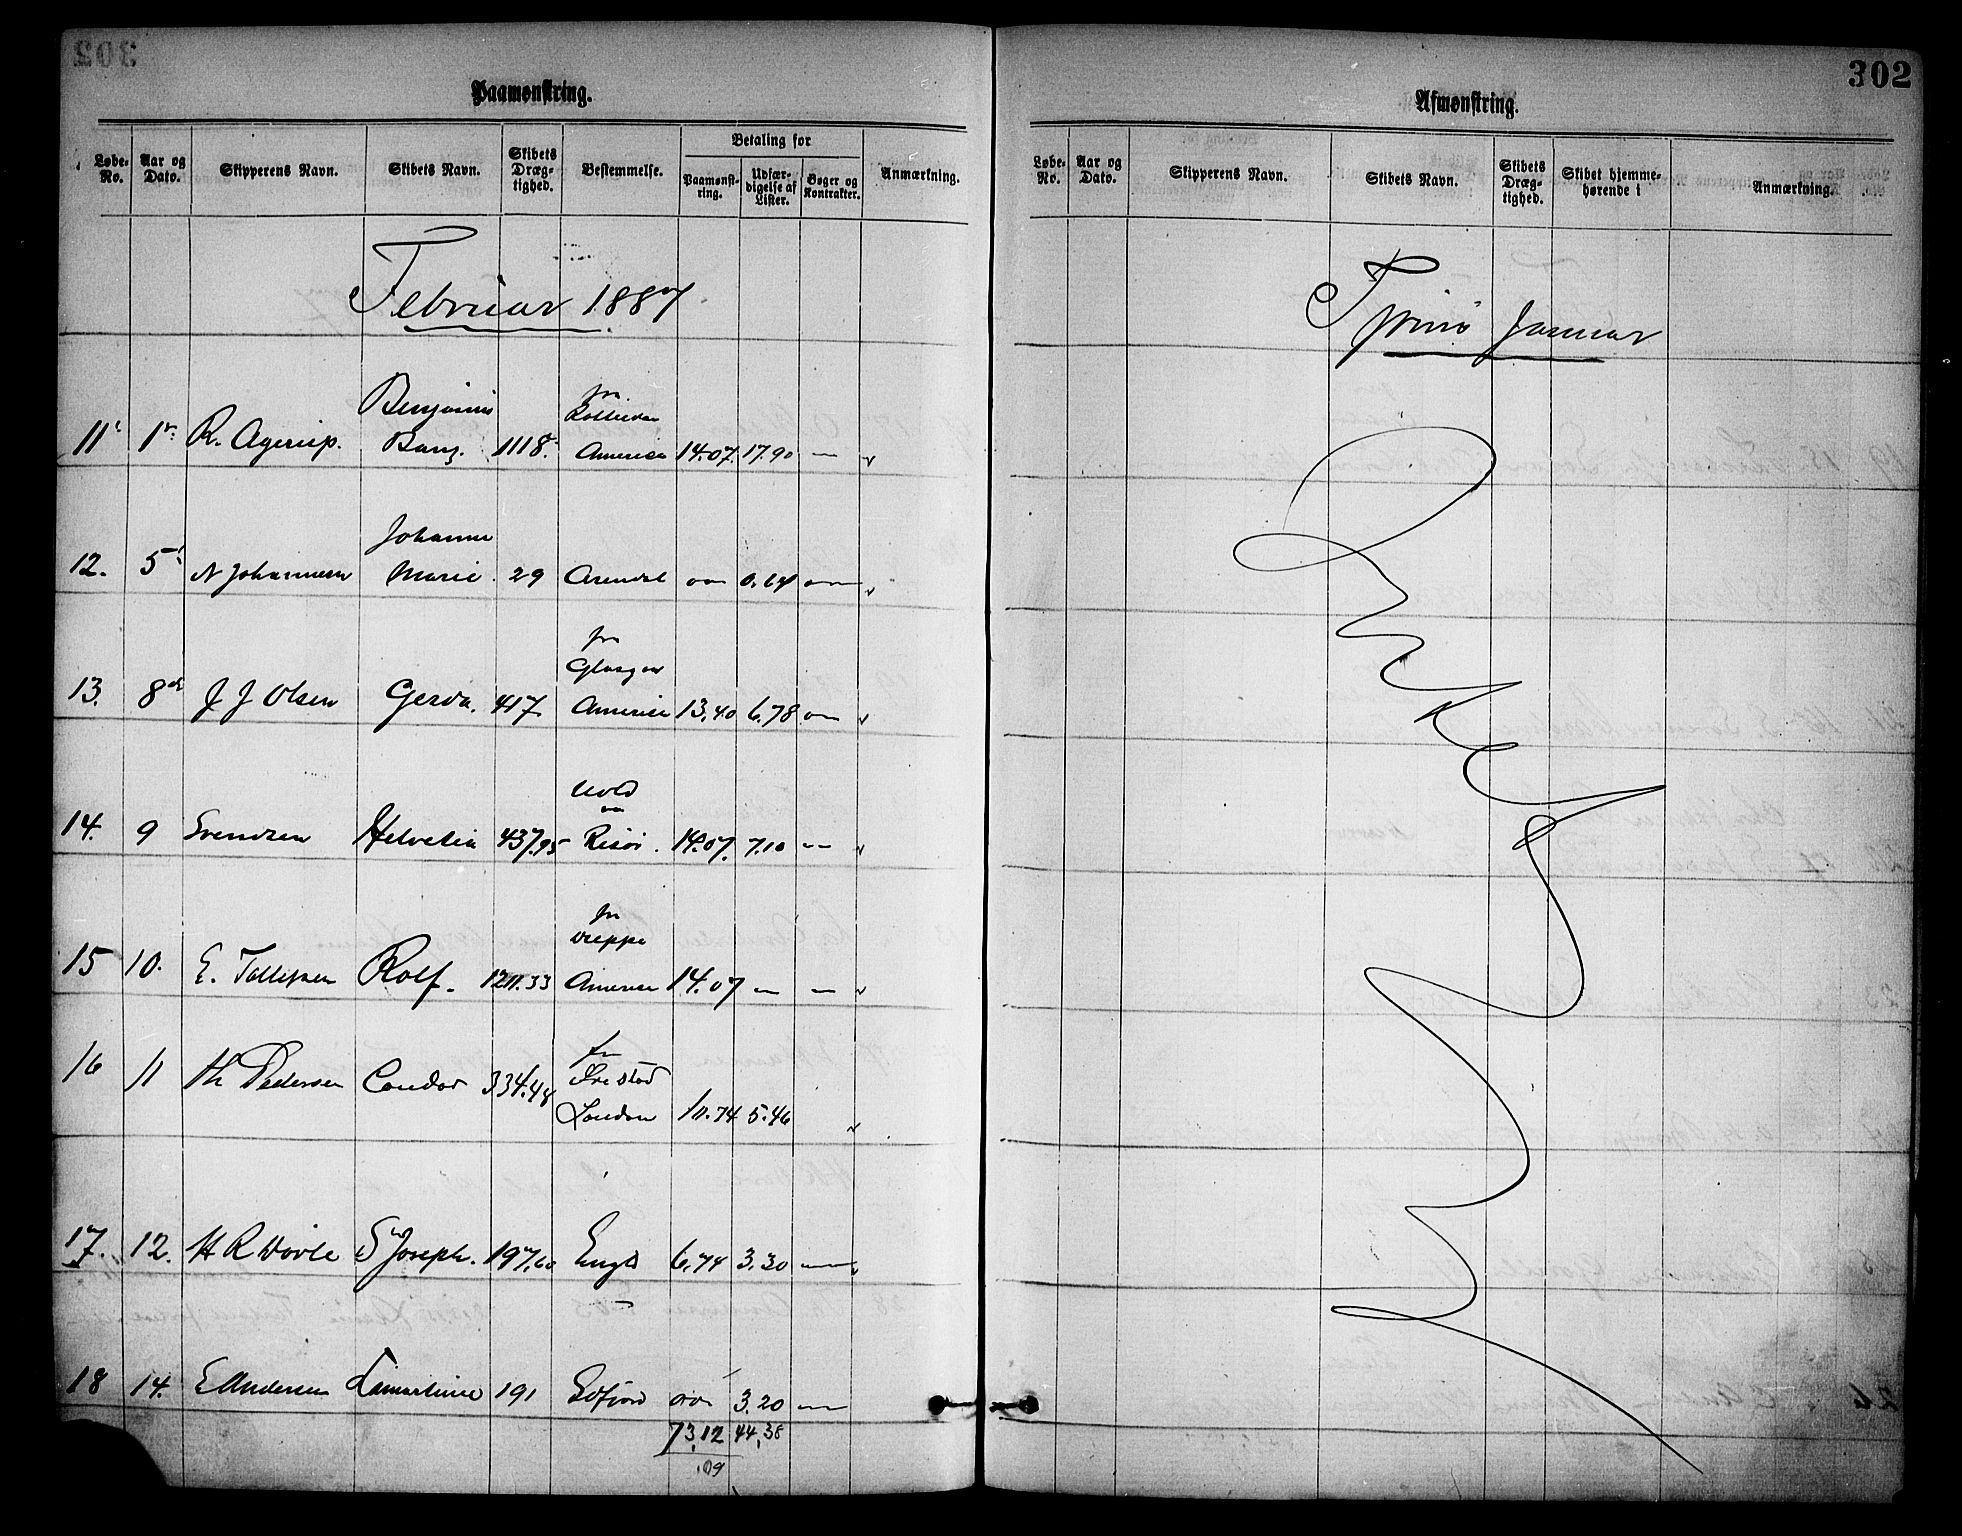 302
Paamønstring.
Løbe-No. Aar og Dato. Skipperens Navn. Skibets Navn. Skibets Dræg-tighed. Bestemmelse. Betaling for Paamønst-ring. Udfær-digelse af Lister. Bøger og Kontrakter. Anmærkning.
Februar 1887
11 1 R. Agerup. Benjamin Bang. 1118. fra America 14.07. 17.90 — "
12. 5 N Johannesen Johanne Marie. 29 Arendal — 0.64 — "
13. 8de J J Olsen Gerda. 417 fra Glasgow America 13.40 6.78 — "
14. 9 Svendsen Helvetia 437.95 Risør. 14.07. 7.10 — "
15 10. E. Tallefsen Rolf. 1211.33 fra Dieppe America 14.07 — — "
16 11 Th Pedersen Condor 334.48 fra London 10.74 5.46 "
17. 12. H R Wovle St Joseph. 197.60 Engld 6.74 3.30 — "
18 14. E Andersen Lamartine 191 — 3.20 —
73,12 44,38
Afmønstring.
302
Løbe-No. Aar og Dato. Skipperens Navn. Skibets Navn. Skibets Dræg-tighed. Skibet hjemme-hørende i Anmærkning.
Januar